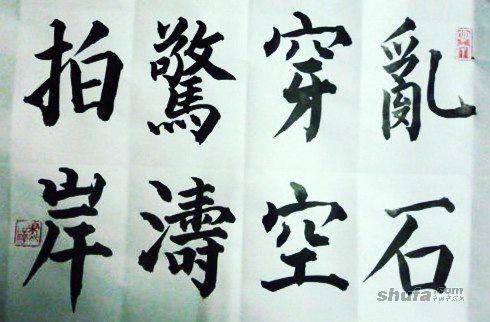 亂石
穿空
驚濤
拍岸
shufa.com